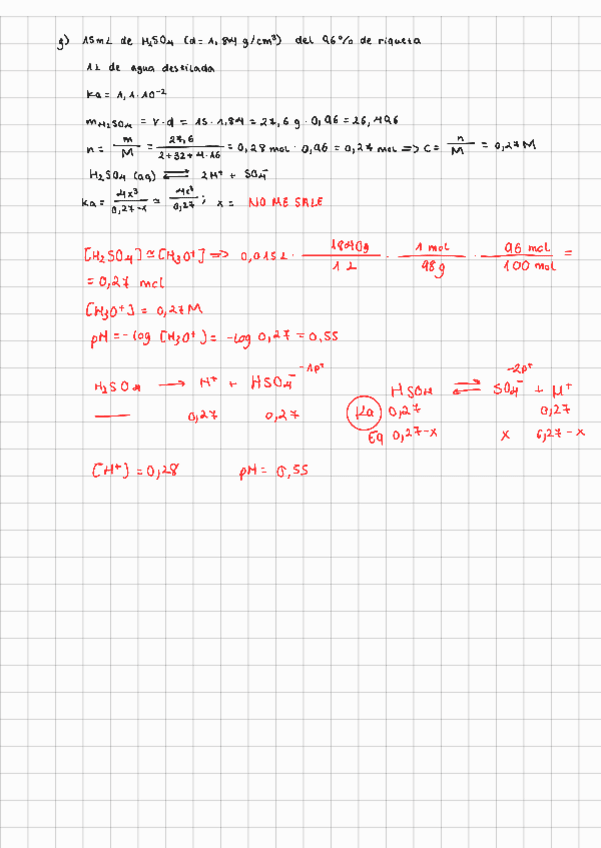 g) 15mL de H₂SO₄ (d = 1,84 g/cm³) del 96% de riqueza
1L de agua destilada
Ka = 1,1·10⁻²
mH₂SO₄ = V·d = 15·1,84 = 27,6 g · 0,96 = 26,496
n = m/M = 27,6/(2+32+4·16) = 0,28 mol · 0,96 = 0,27 mol => C = n/M = 0,27M
H₂SO₄ (aq) ⇌ 2H⁺ + SO₄⁻
Ka = 4x³/(0,27-x) ≃ 4x³/0,27 ; x = NO ME SALE
[H₂SO₄] ≃ [H₃O⁺] => 0,015L · 1840g/1L · 1 mol/98g · 96 mol/100 mol =
= 0,27 mol
[H₃O⁺] = 0,27M
pH = -log [H₃O⁺] = -log 0,27 = 0,55
H₂SO₄ → H⁺ + HSO₄⁻ -1p⁺
HSO₄ ⇌ SO₄⁻ + H⁺ -2p⁺
— 0,27 0,27
Ka 0,27 0,27
Eq 0,27-x x 0,27-x
[H⁺] = 0,28 pH = 0,55